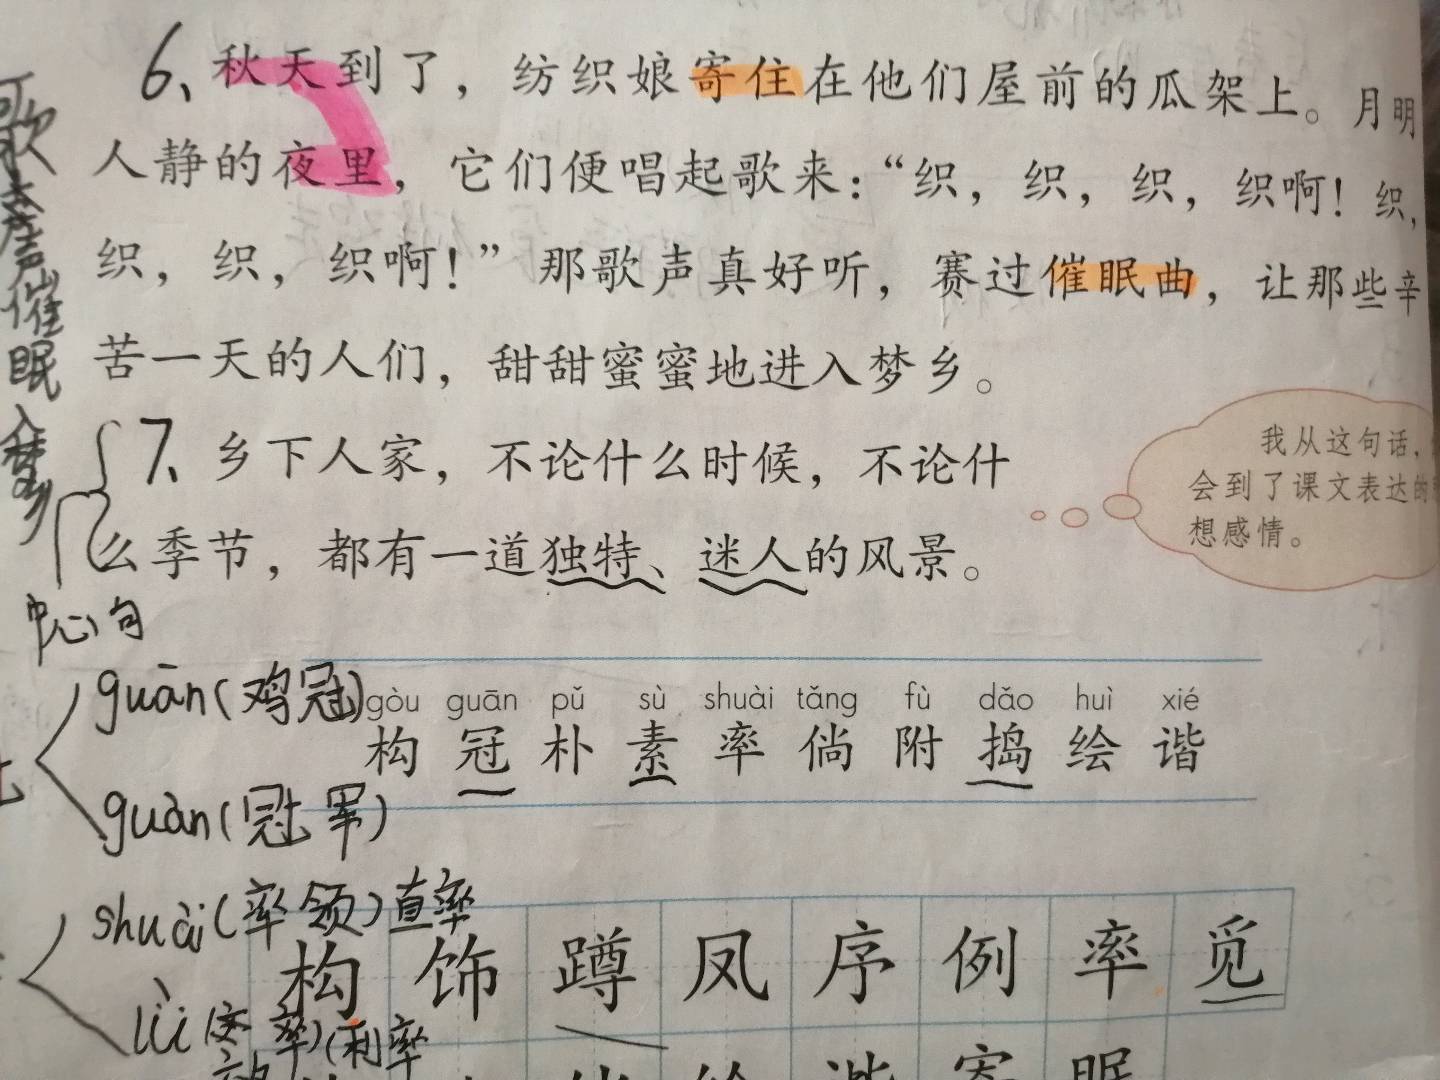 6、秋天到了，纺织娘寄住在他们屋前的瓜架上。月明
人静的夜里，它们便唱起歌来：“织，织，织，织啊！织，
织，织，织啊！”那歌声真好听，赛过催眠曲，让那些辛
苦一天的人们，甜甜蜜蜜地进入梦乡。
7、乡下人家，不论什么时候，不论什
么季节，都有一道独特、迷人的风景。
我从这句话，
会到了课文表达的
想感情。
歌声催眠入梦乡
中心句
guān(鸡冠)
guàn(冠军)
gòu guān pǔ sù shuài tǎng fù dǎo huì xié
构 冠 朴 素 率 倘 附 捣 绘 谐
shuài(率领)直率
lǜ(效率)(利率
构 饰 蹲 凤 序 例 率 觅
谐 寄 眠